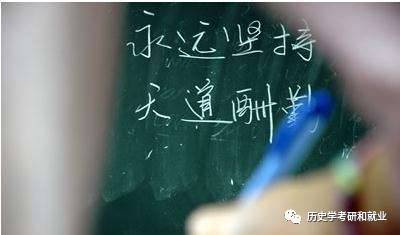 永远坚持
天道酬勤
历史学考研和就业